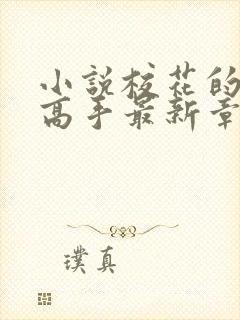 小説校花的
高手最新章
璞真